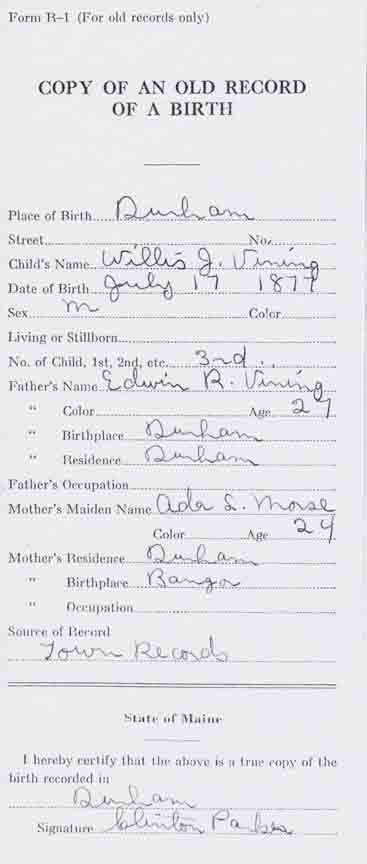 Form R-1 (For old records only)
COPY OF AN OLD RECORD
OF A BIRTH
Place of Birth Durham
Street No.
Child's Name Willis J. Vining
Date of Birth July 17 1877
Sex M Color
Living or Stillborn
No. of Child, 1st, 2nd, etc. 3rd
Father's Name Edwin R. Vining
" Color Age 27
" Birthplace Durham
" Residence Durham
Father's Occupation
Mother's Maiden Name Ada S. Morse
Color Age 24
Mother's Residence Durham
" Birthplace Bangor
" Occupation
Source of Record
Town Records
State of Maine
I hereby certify that the above is a true copy of the
birth recorded in
Durham
Signature Clinton